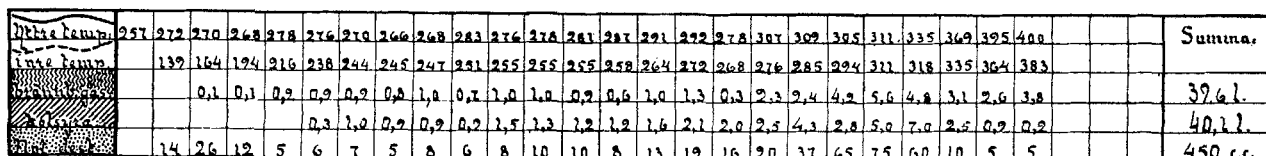 Yttre temp. 257 272 270 268 278 276 270 266 268 283 276 278 281 287 291 292 278 307 309 305 311 335 369 395 400 Summa.
Inre temp. 139 164 194 216 238 244 245 247 251 255 255 255 258 264 272 268 276 285 294 311 318 335 364 383
0,1 0,1 0,9 0,9 0,9 0,8 1,0 0,7 1,0 1,0 0,9 0,6 1,0 1,3 0,3 2,3 2,4 4,2 5,6 4,8 3,1 2,6 3,8 39,6 l.
0,3 1,0 0,9 0,9 0,9 1,5 1,3 1,2 1,2 1,6 2,1 2,0 2,5 4,3 2,8 5,0 7,0 2,5 0,9 0,2 40,1 l.
14 26 12 5 6 7 5 8 6 8 10 10 8 13 19 16 20 37 65 75 60 10 5 5 450 c.c.